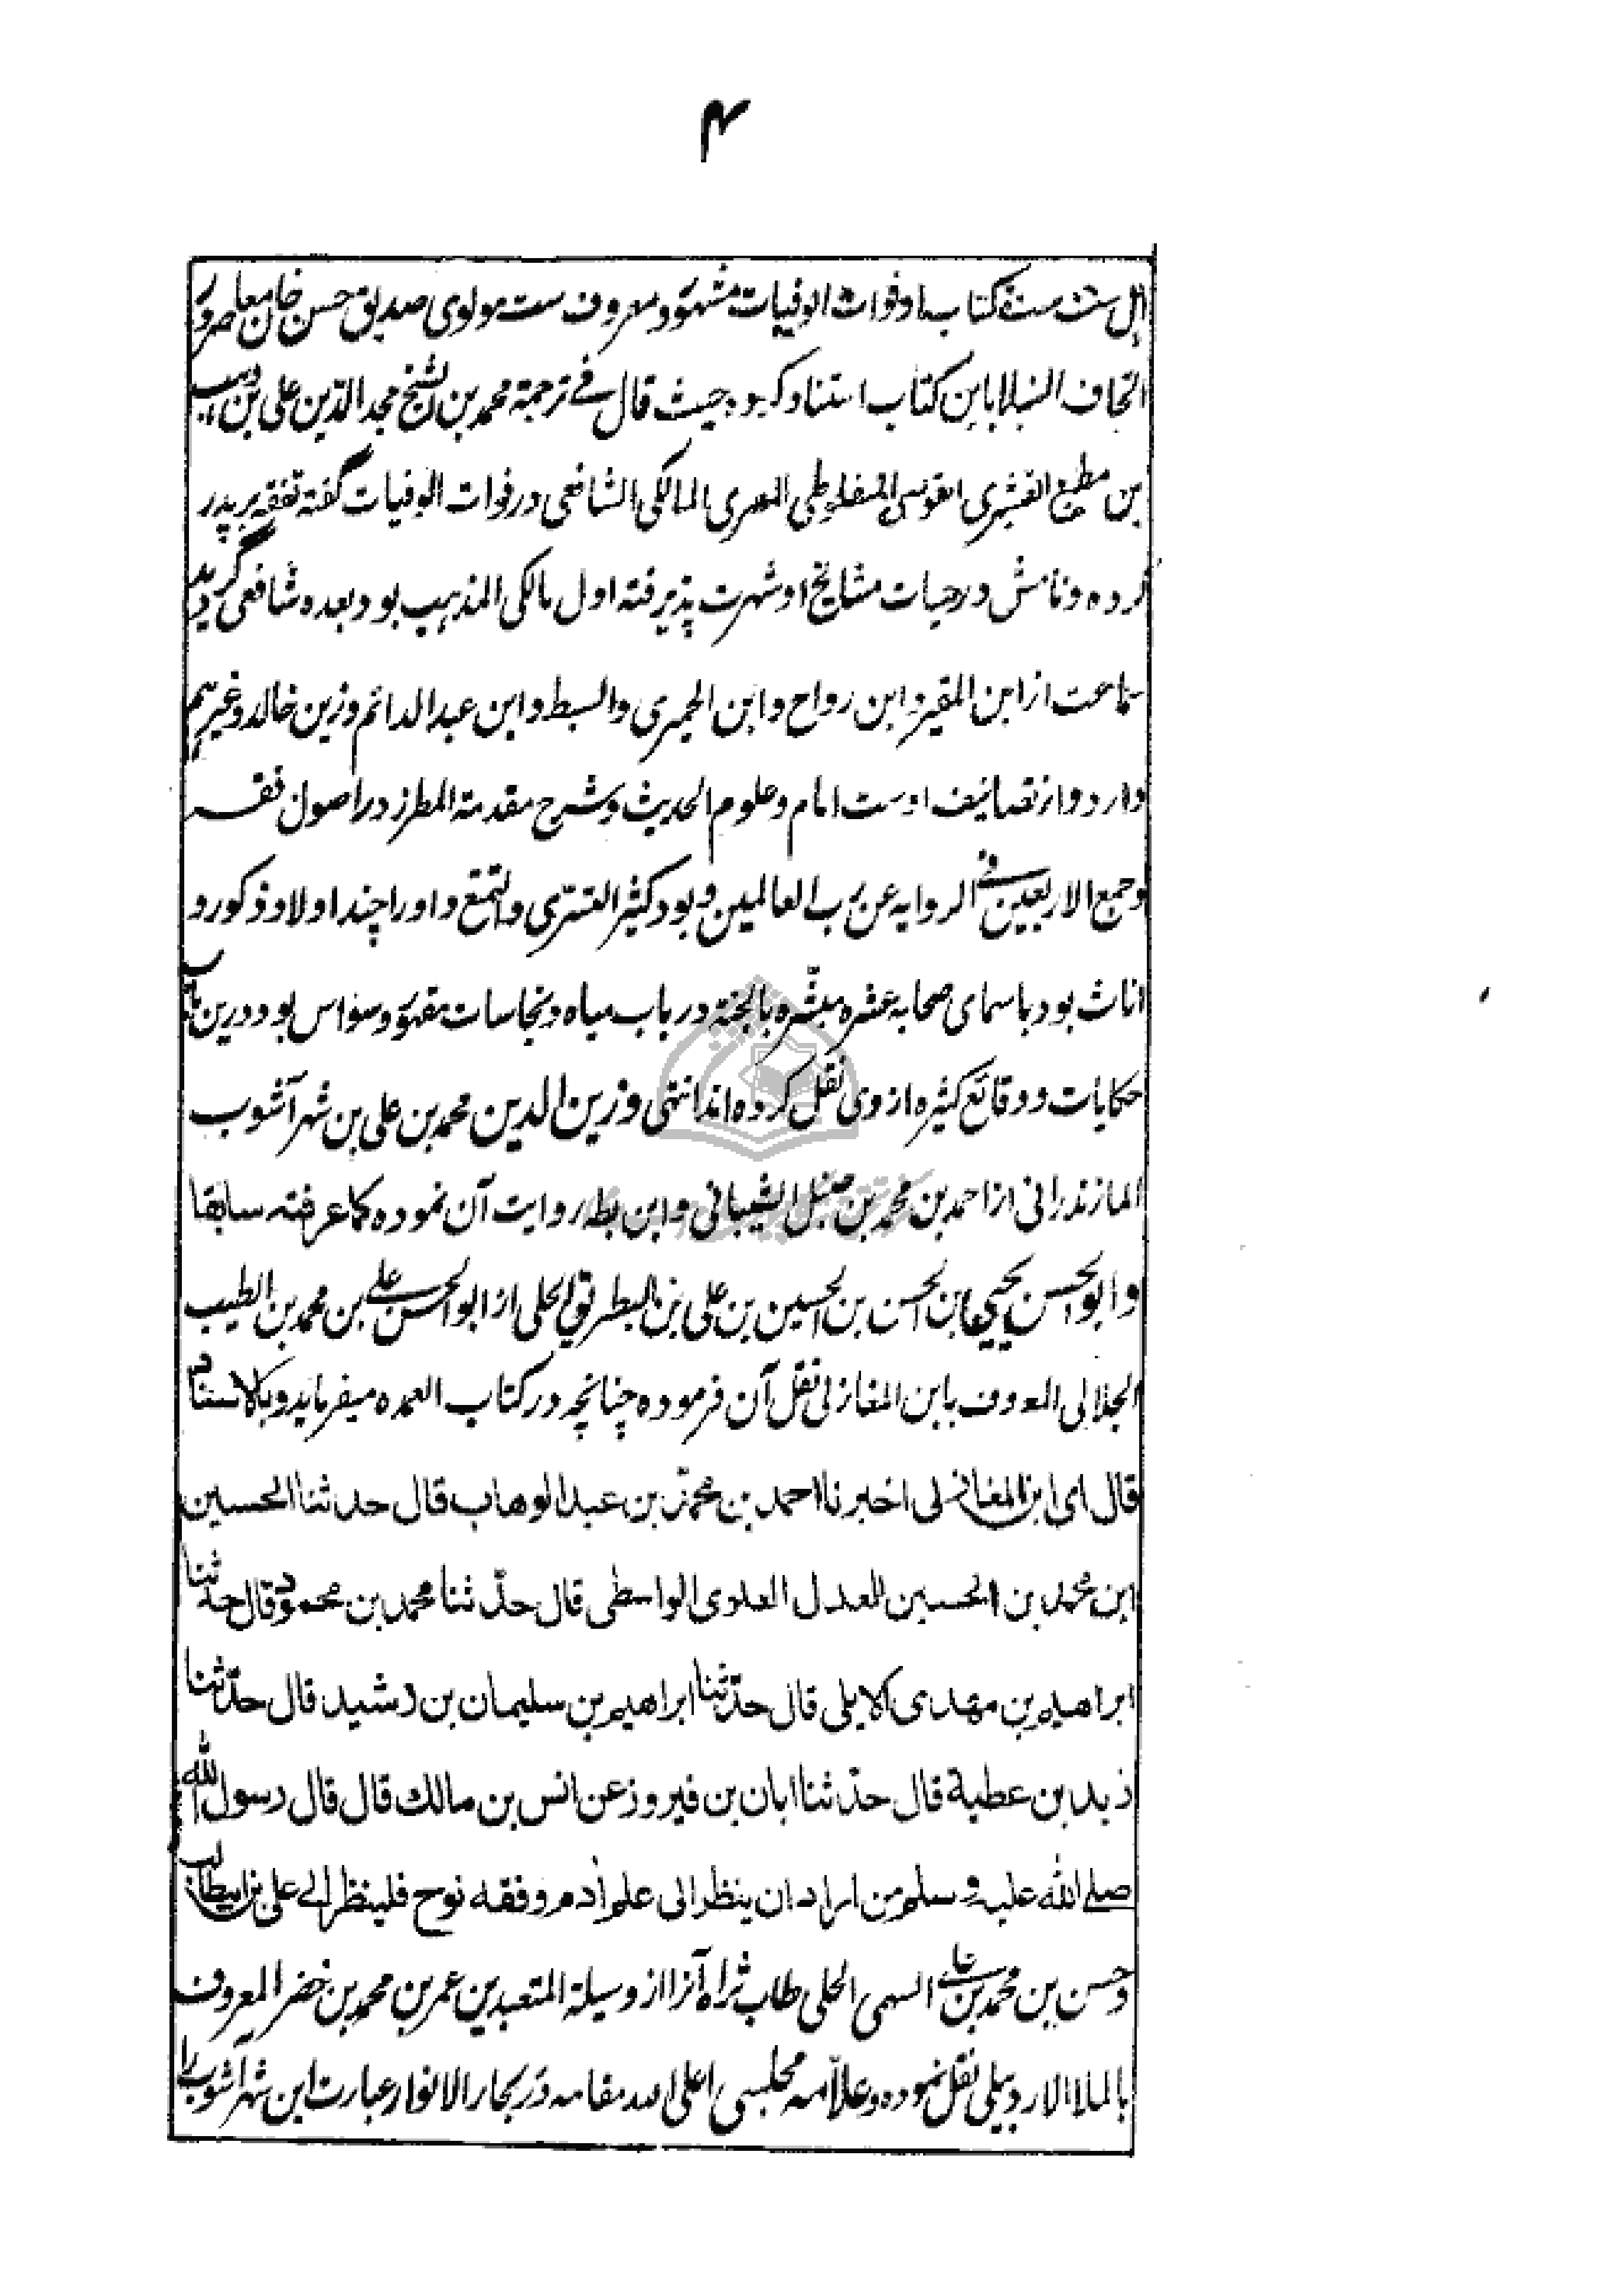 ۴
اہل سنت ست کتاب او فوات الوفیات مشہور و معروف ست مولوی صدیق حسن خان معاصر در
اتحاف النبلا باین کتاب استناد کرده حیث قال فے ترجمة محمد بن الشیخ مجد الدین علی بن وہب
بن مطیع القشیری القوصی المنفلوطی المصری المالکی الشافعی در فوات الوفیات گفته تفقه بر پدر
کرده و نامش در حیات مشائخ او شہرت پذیرفته اول مالکی المذہب بود بعده شافعی گردید
سماعت از ابن المقیر و ابن رواح و ابن الجمیزی و السبط و ابن عبد الدائم و زین خالد و غیرہم
دارد و از تصانیف اوست امام و علوم الحدیث و شرح مقدمة المطرز در اصول فقه
و جمع الاربعین فے الروایه عن رب العالمین و بود کثیر التسری و التمتع و او را چند اولاد ذکور و
اناث بود باسمای صحابه عشره مبشره بالجنة در باب میاه و نجاسات مقهور وسواس بود درین باب
حکایات و وقائع کثیره از وی نقل کرده اند انتہی و زین الدین محمد بن علی بن شہر آشوب
المازندرانی از احمد بن محمد بن حنبل الشیبانی و ابن بطه روایت آن نموده کما عرفته سابقا
و ابو الحسن یحیی بن الحسن بن الحسین بن علی بن البطریق الحلی از ابو الحسن علے بن محمد بن الطیب
الجلالی المعروف بابن المغازلی نقل آن فرموده چنانچه در کتاب العمده میفرماید و بالاسناد
قال ای ابن المغازلی اخبرنا احمد بن محمد بن عبد الوهاب قال حدثنا الحسین
ابن محمد بن الحسین العدل العلوی الواسطی قال حدّثنا محمد بن محمود قال حدثنا
ابراهیم بن مهدی الابلی قال حدّثنا ابراهیم بن سلیمان بن رشید قال حدّثنا
زید بن عطیة قال حدّثنا ابان بن فیروز عن انس بن مالك قال قال رسول الله
صلے الله علیه و سلم من اراد ان ینظر الی علم آدم و فقه نوح فلینظر الے علی بن ابیطالب
و حسن بن محمد بن علے السهمی الحلی طاب ثراه آنرا از وسیلة المتعبدین عمر بن محمد بن خضر المعروف
بالملا الاردبیلی نقل نموده و علاّمه مجلسی اعلی الله مقامه در بحار الانوار عبارت ابن شهر آشوب را